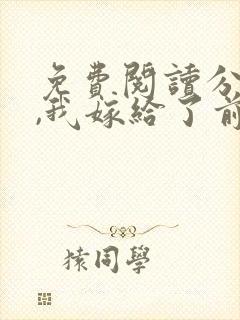 免費閱讀分
,我嫁給了前
猿同學